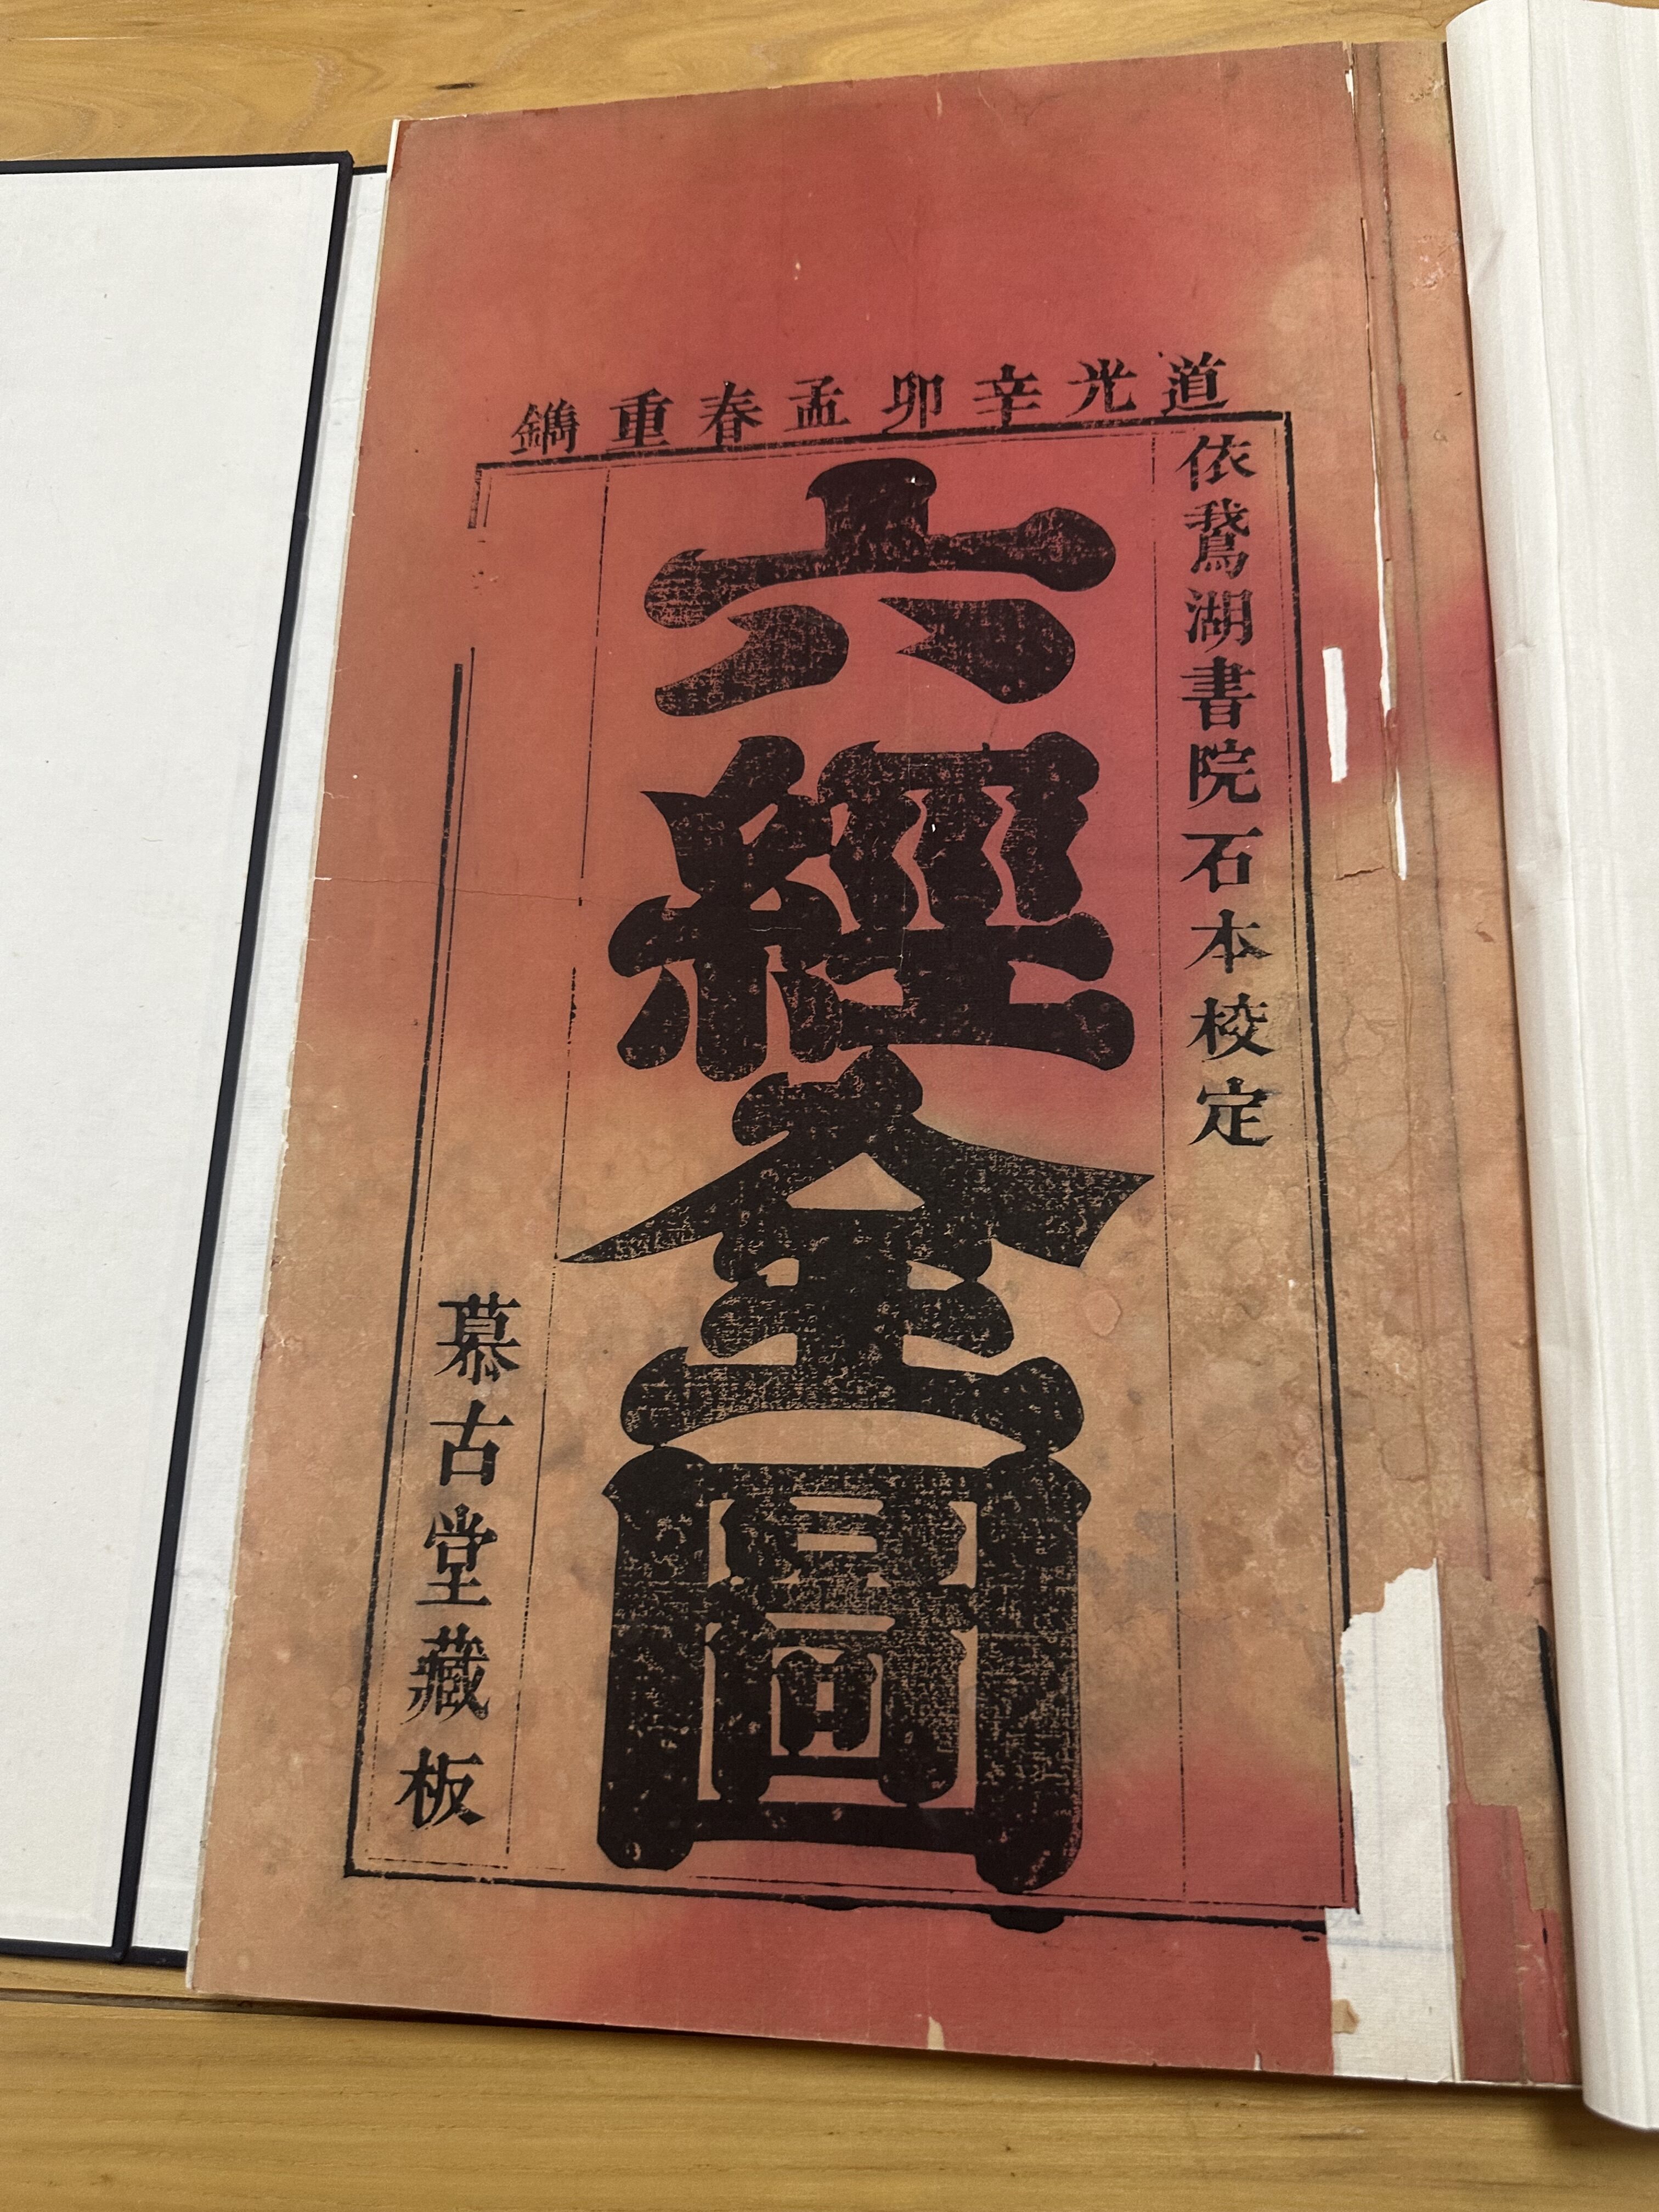 道光辛卯孟春重鐫
依鵞湖書院石本校定
六經全圖
慕古堂藏板